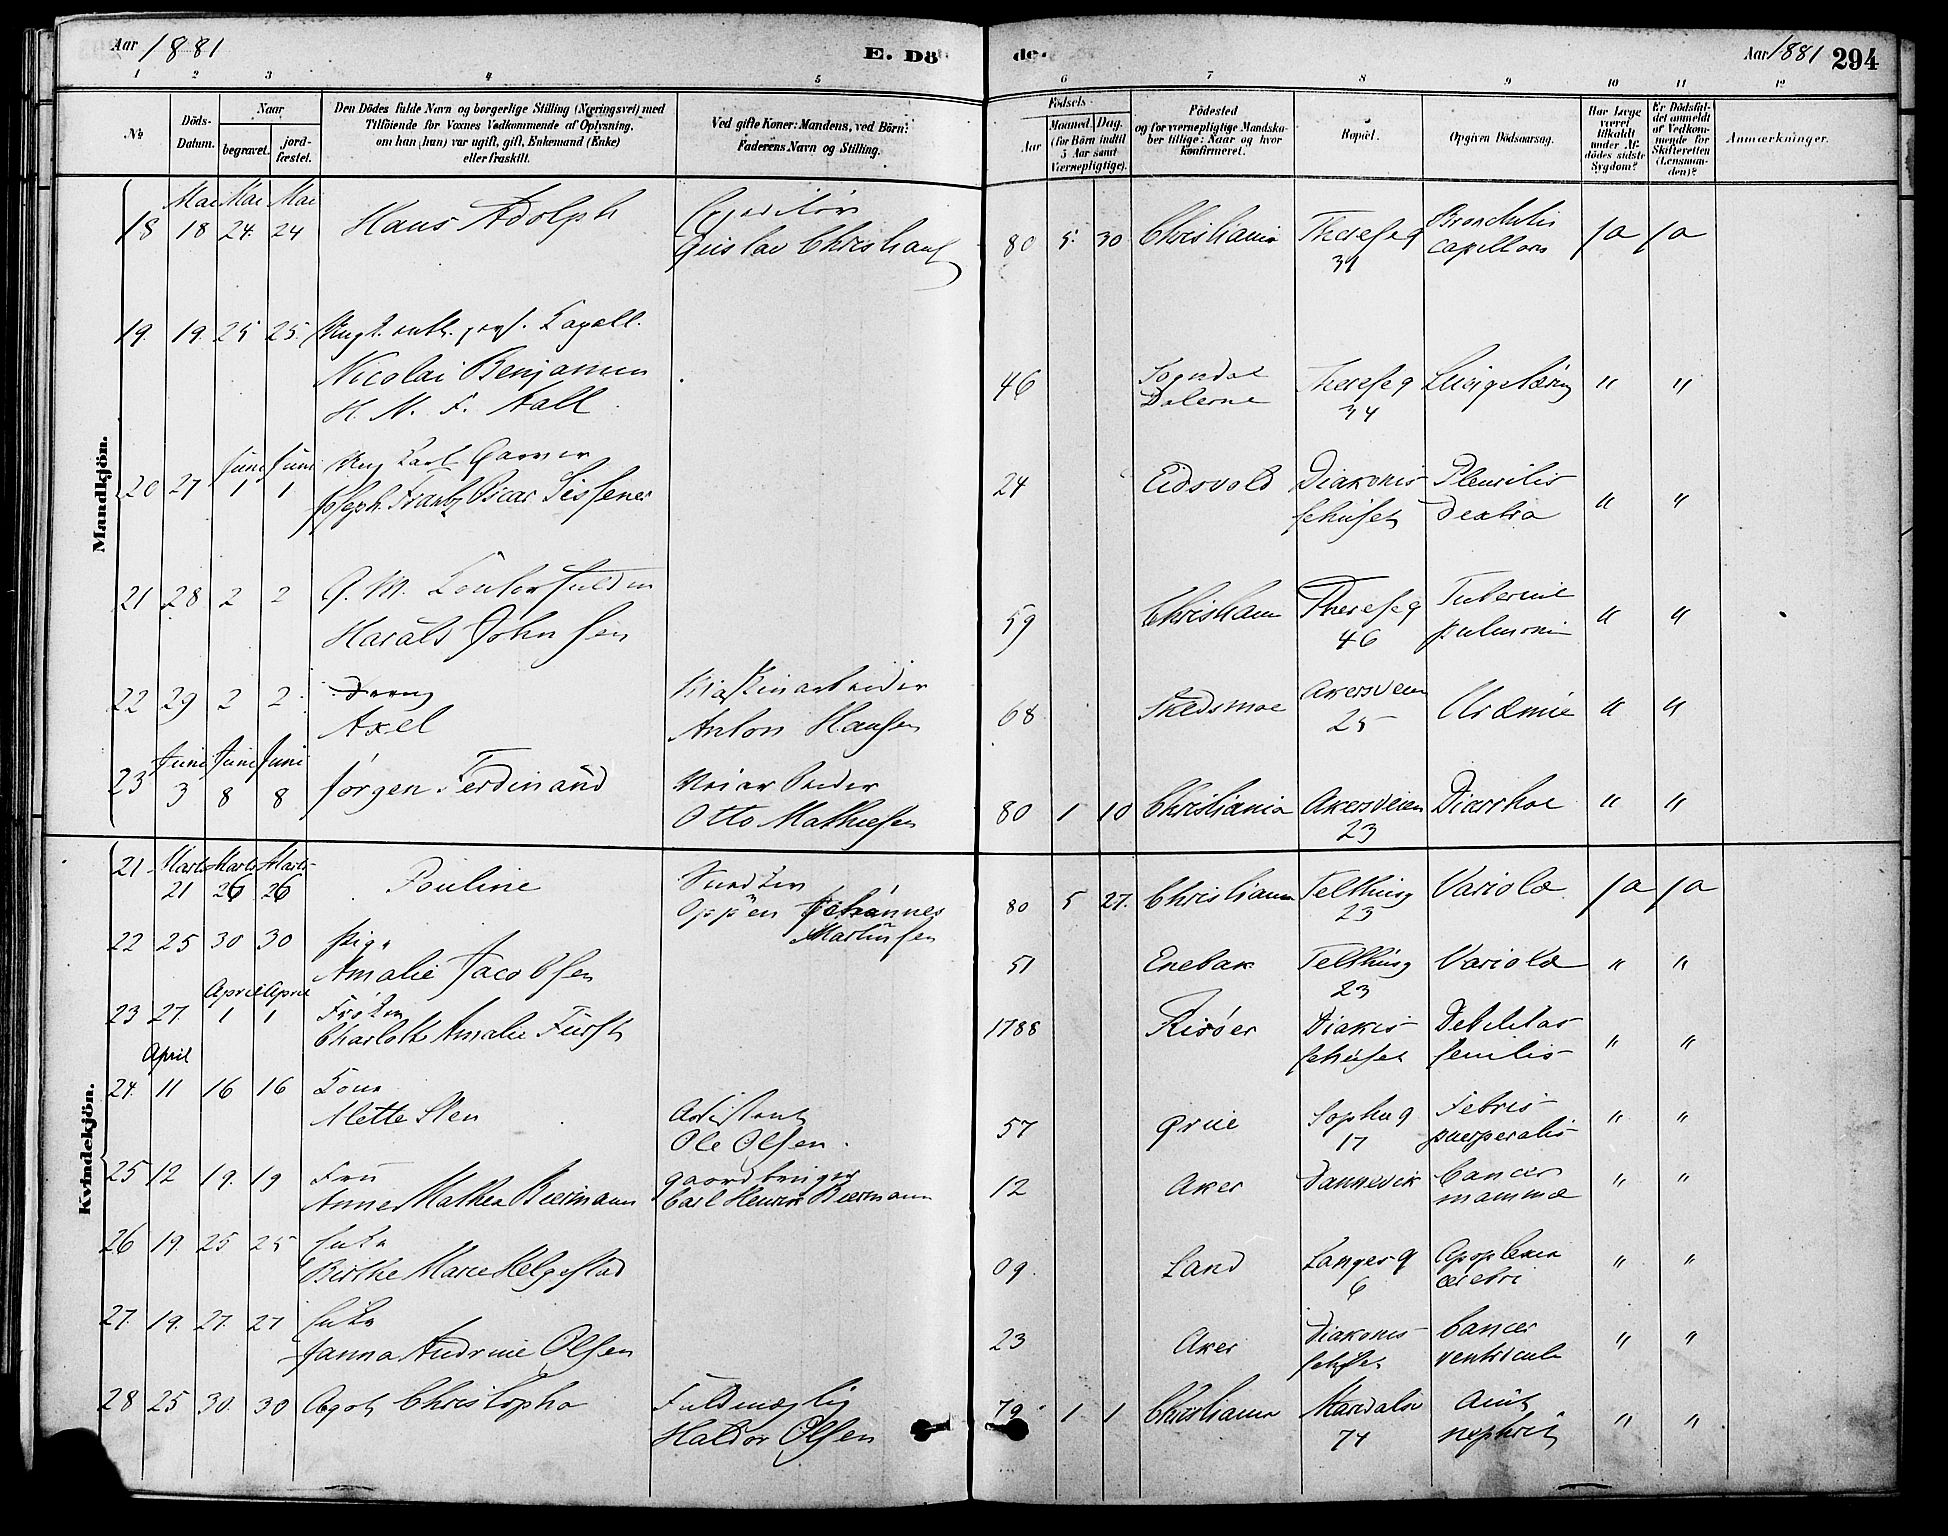 Aar 1881
E. Dö
de.
Aar 1881 294
1 2 3 4 5 6 7 8 9 10 11 12
No
Döds-Datum.
Naar
begravet.
jord-fæstet.
Den Dödes fulde Navn og borgerlige Stilling (Næringsvei) med
Tilföiende for Voxnes Vedkommende af Oplysning,
om han (hun) var ugift, gift, Enkemand (Enke)
eller fraskilt.
Ved gifte Koner: Mandens, ved Börn:
Faderens Navn og Stilling.
Födsels-
Aar
Maaned. Dag.
(for Børn indtil
5 Aar samt
Værnepligtige).
Födested
og for værnepligtige Mandska-
ber tillige: Naar og hvor
konfirmeret.
Bopæl.
Opgiven Dödsaarsag.
Har Læge
været
tilkaldt
under Af-
dödes sidste
Sygdom?
Er Dödsfal-
det anmeldt
af Vedkom-
mende for
Skifteretten
(Lensman-
den)?
Anmærkninger.
Mandkjön.
Mai Mai Mai
18 18 24. 24 Hans Adolph
Gustav Christians
80 5. 30 Christiania Therese g 31 Bronchitis capillaris Ja Ja
19. 19. 25 25. Kapell.
Nicolai Benjamin
H. N. F. Aall
46 Sogndal Dalerne Therese g 34 " "
Juni Juni
20 27 1 1 Ung Karl
Joseph Frantz Oscar
24 Eidsvold Diakonissehuset Pleuritis dextra " "
21 28 2 2 G. M.
Harald Johnsen
59 Christiania Therese g 46 " "
22 29 2 2 Dreng
Axel
Maskinarbeider
Anton Hansen
68 Skedsmoe Akersveien 25 Uræmie " "
Juni Juni Juni
23 3 8 8 Jørgen Ferdinand
Otto Mathiesen
80 1 10 Christiania Akersveien 23 Diarrhoe " "
Kvindekjön.
Marts Marts Marts
21 21 26 26 Pouline
Snedker
Oppen Johannes
Martinsen
80 5 27. Christiania Telthusg 23 Variolæ Ja Ja
22 25 30 30 Pige
Amalie Jacobsen
51 Enebak Telthusg 23 Variolæ " "
April April
23 27. 1 1 Frøken
Charlotte Amalie Fürst
1788 Risøer Debilitas senilis " "
April
24. 11 16 16 Kone
Mette Sten
Assistent
Ole Olsen.
57 Grue Sophieg 17 Febris puerperalis " "
25 12 19. 19 Fru
Anne Mathea Biermann
gaardbruger
Carl Henrik Biermann
12 Aker Dannevik Cancer mammæ " "
26 19. 25 25 Enke
Birthe Marie Helgestad
09. Land Langes g 6 Apoplexia cerebri " "
27. 19. 27. 27 Enke
Janna Andrine Olsen
23 Aker Diakonissehuset Cancer ventriculi " "
28 25 30. 30 Agot Christopha
Fuldmægtig
Haldor Olsen
79. 1 1 Christiania Maridalsv 74 " "